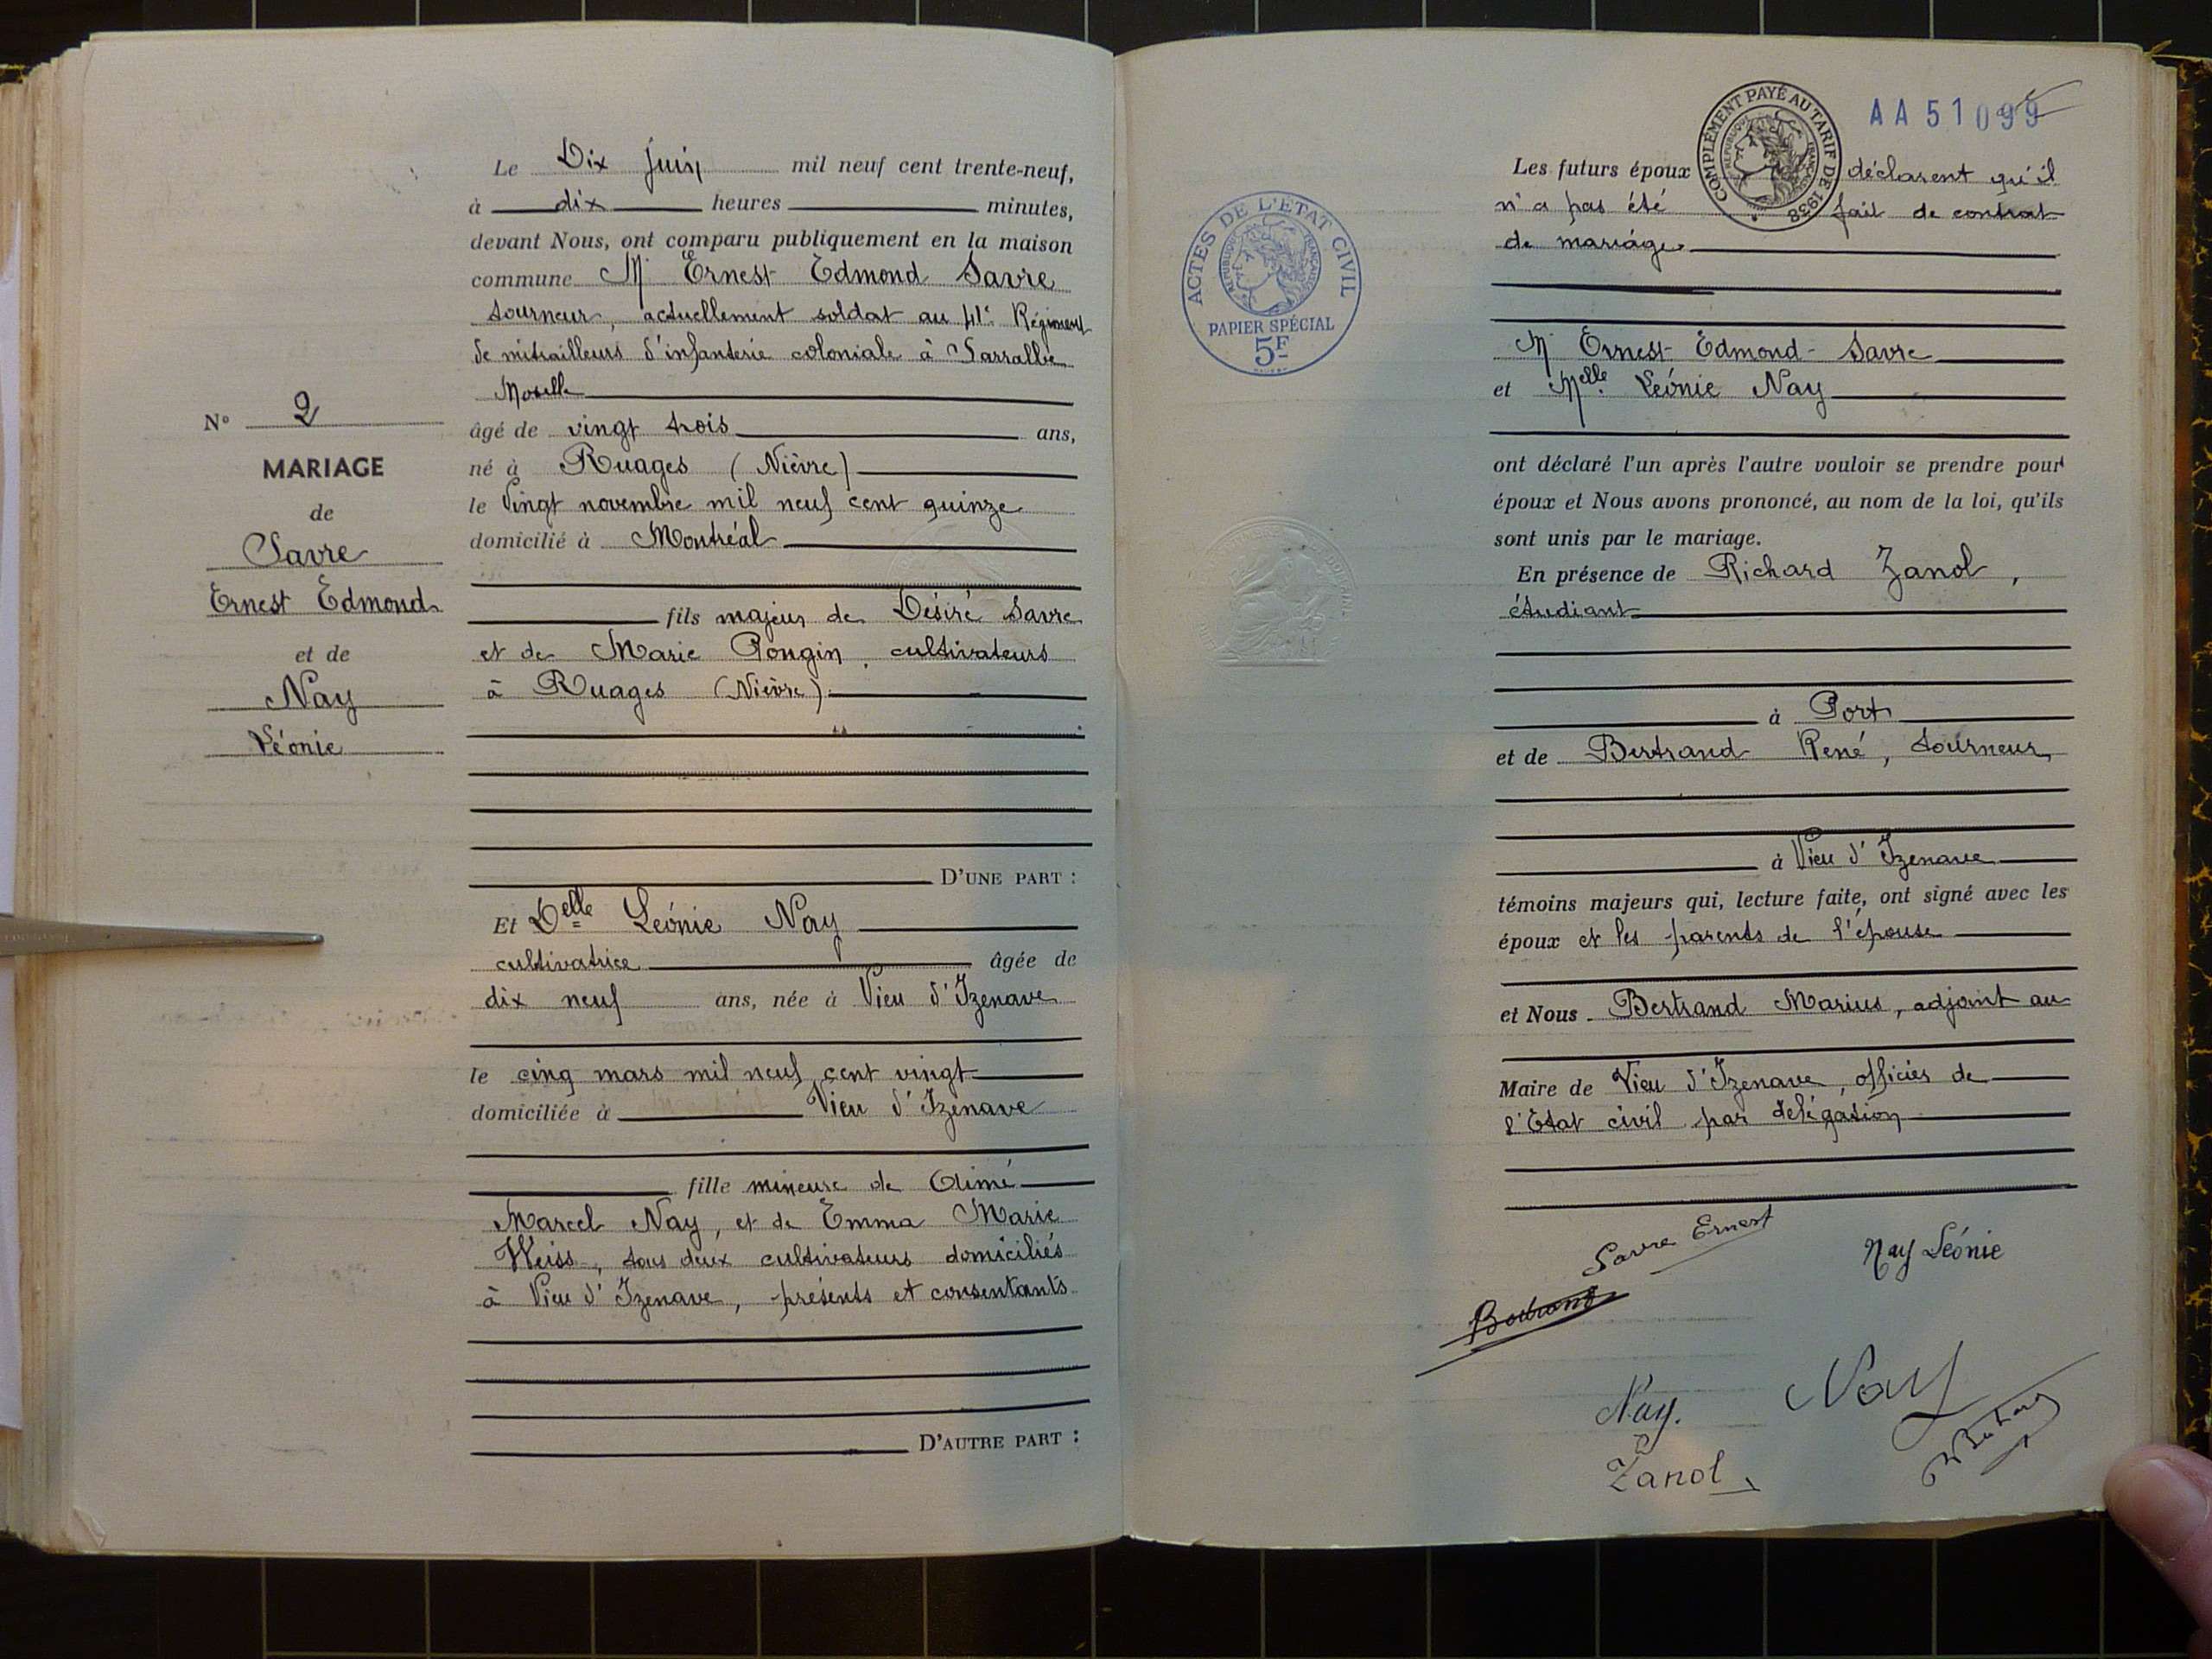 N° 2
MARIAGE
de
Savre
Ernest Edmond
et de
Nay
Léonie
Le Dix juin mil neuf cent trente-neuf,
à dix heures minutes,
devant Nous, ont comparu publiquement en la maison
commune Mr Ernest Edmond Savre
tourneur, actuellement soldat au 41e Régiment
de mitrailleurs d'infanterie coloniale à Sarralbe
Moselle
âgé de vingt trois ans,
né à Ruages (Nièvre)
le Vingt novembre mil neuf cent quinze
domicilié à Montréal
fils majeur de Désiré Savre
et de Marie Pougin, cultivateurs
à Ruages (Nièvre).
D'UNE PART :
Et Delle Léonie Nay
cultivatrice âgée de
dix neuf ans, née à Vieu d'Izenave
le cinq mars mil neuf cent vingt
domiciliée à Vieu d'Izenave
fille mineure de Aimé
Marcel Nay, et de Emma Marie
Weiss, tous deux cultivateurs domiciliés
à Vieu d'Izenave, présents et consentants
D'AUTRE PART :
ACTES DE L'ETAT CIVIL
REPUBLIQUE FRANÇAISE
PAPIER SPÉCIAL
5F
COMPLÉMENT PAYÉ AU TARIF DE 1938
REPUBLIQUE FRANÇAISE
AA 51099
Les futurs époux déclarent qu'il
n'a pas été fait de contrat
de mariage.
Mr Ernest Edmond Savre
et Melle Léonie Nay
ont déclaré l'un après l'autre vouloir se prendre pour
époux et Nous avons prononcé, au nom de la loi, qu'ils
sont unis par le mariage.
En présence de Richard Zanol,
étudiant
à Port
et de Bertrand René, tourneur
à Vieu d'Izenave
témoins majeurs qui, lecture faite, ont signé avec les
époux et les parents de l'épouse
et Nous Bertrand Marius, adjoint au
Maire de Vieu d'Izenave, officier de
l'Etat civil par délégation
Savre Ernest
Nay Léonie
Bertrand
Nay.
Nay
Zanol